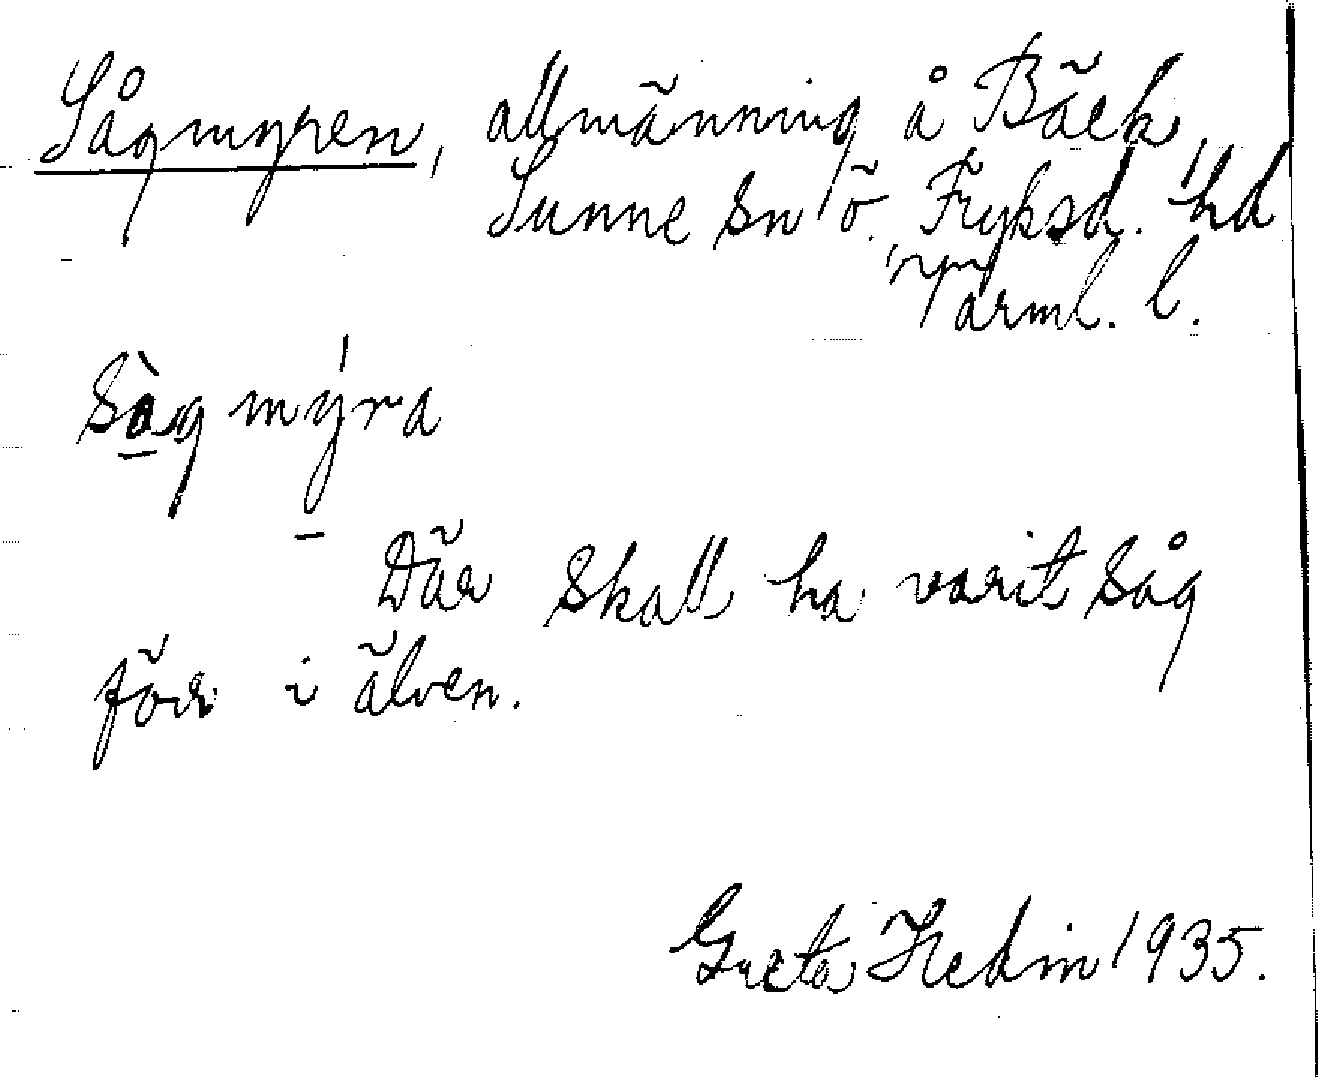 Sågmyren, allmänning å Bäck,
Sunne sn Ö. Fryksd. hd
Värml. l.
sàg mýra
Där skall ha varit såg
förr i älven.
Greta Hedin 1935.